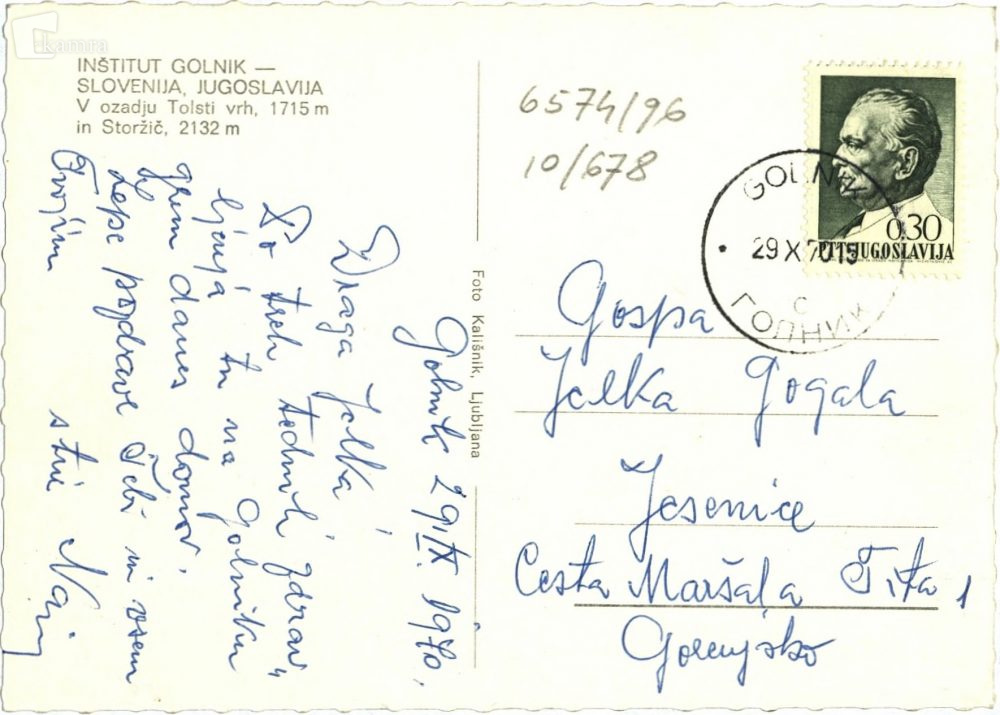 kamra
INŠTITUT GOLNIK —
SLOVENIJA, JUGOSLAVIJA
V ozadju Tolsti vrh, 1715 m
in Storžič, 2132 m
Golnik 29.IX. 1970.
Draga Jelka!
Po treh tednih zdrav„
ljenja tu na Golniku
grem danes domov.
Lepe pozdrave Tebi in vsem
Tvojim
stric
Foto Kališnik, Ljubljana
6574/96
10/678
0.30
PTT JUGOSLAVIJA
GOLNIK
29 X 70 15
c
ГОЛНИК
Gospa
Jelka Gogala
Jesenice
Cesta Maršala Tita 1
Gorenjsko